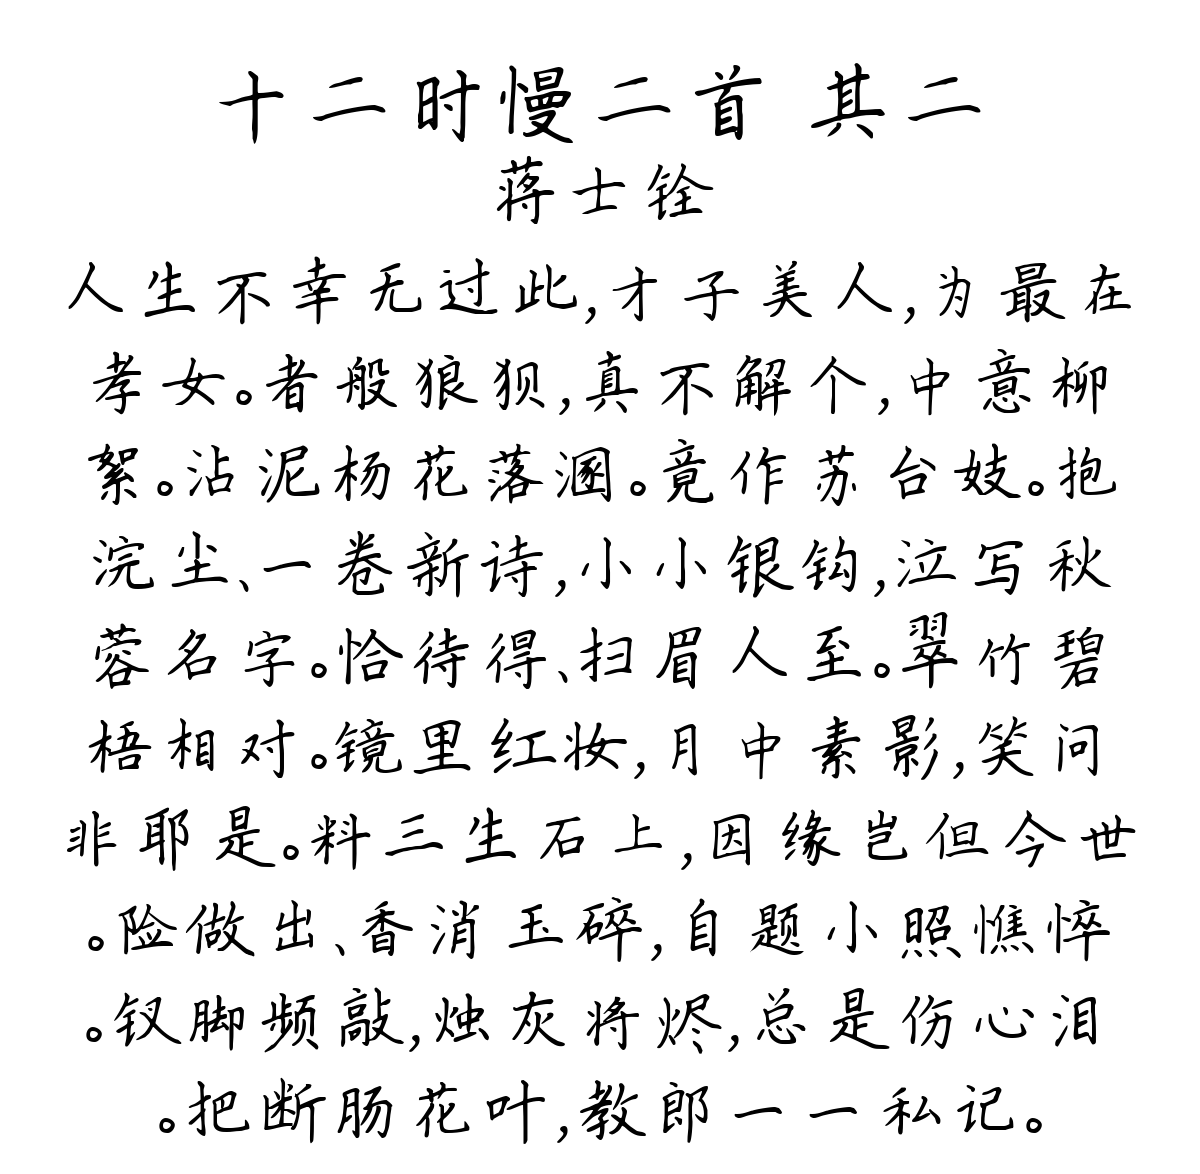 十二时慢二首 其二
蒋士铨
人生不幸无过此,才子美人,为最在
孝女。者般狼狈,真不解个,中意柳
絮。沾泥杨花落溷。竟作苏台妓。抱
浣尘、一卷新诗,小小银钩,泣写秋
蓉名字。恰待得、扫眉人至。翠竹碧
梧相对。镜里红妆,月中素影,笑问
非耶是。料三生石上,因缘岂但今世
。险做出、香消玉碎,自题小照憔悴
。钗脚频敲,烛灰将烬,总是伤心泪
。把断肠花叶,教郎一一私记。